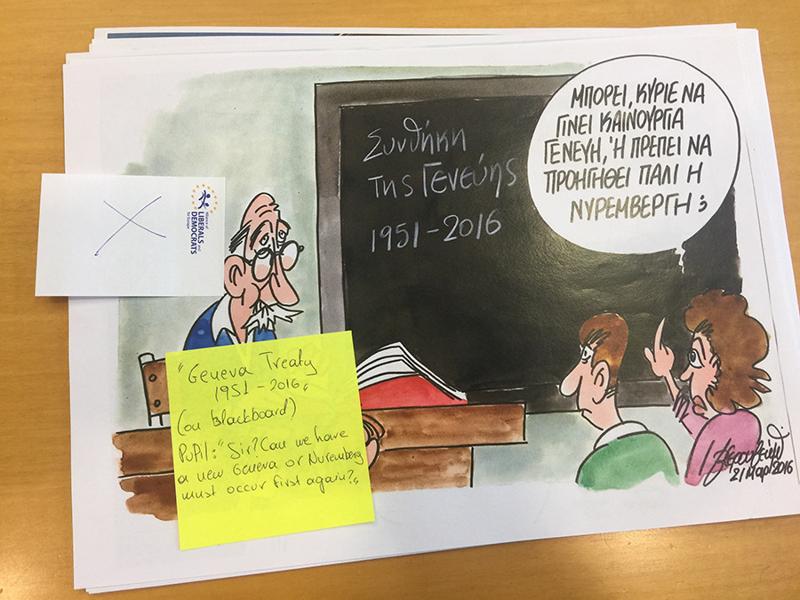 Συνθήκη
της Γενεύης
1951-2016
ΜΠΟΡΕΙ, ΚΥΡΙΕ ΝΑ
ΓΙΝΕΙ ΚΑΙΝΟΥΡΓΙΑ
ΓΕΝΕΥΗ, Ή ΠΡΕΠΕΙ ΝΑ
ΠΡΟΗΓΗΘΕΙ ΠΑΛΙ Η
ΝΥΡΕΜΒΕΡΓΗ;
LIBERALS and
DEMOCRATS
for Europe
X
"Geneva Treaty
1951-2016"
(on blackboard)
PUPIL: "Sir? Can we have
a new Geneva or Nuremberg
must occur first again?"
21 Μαρ 2016